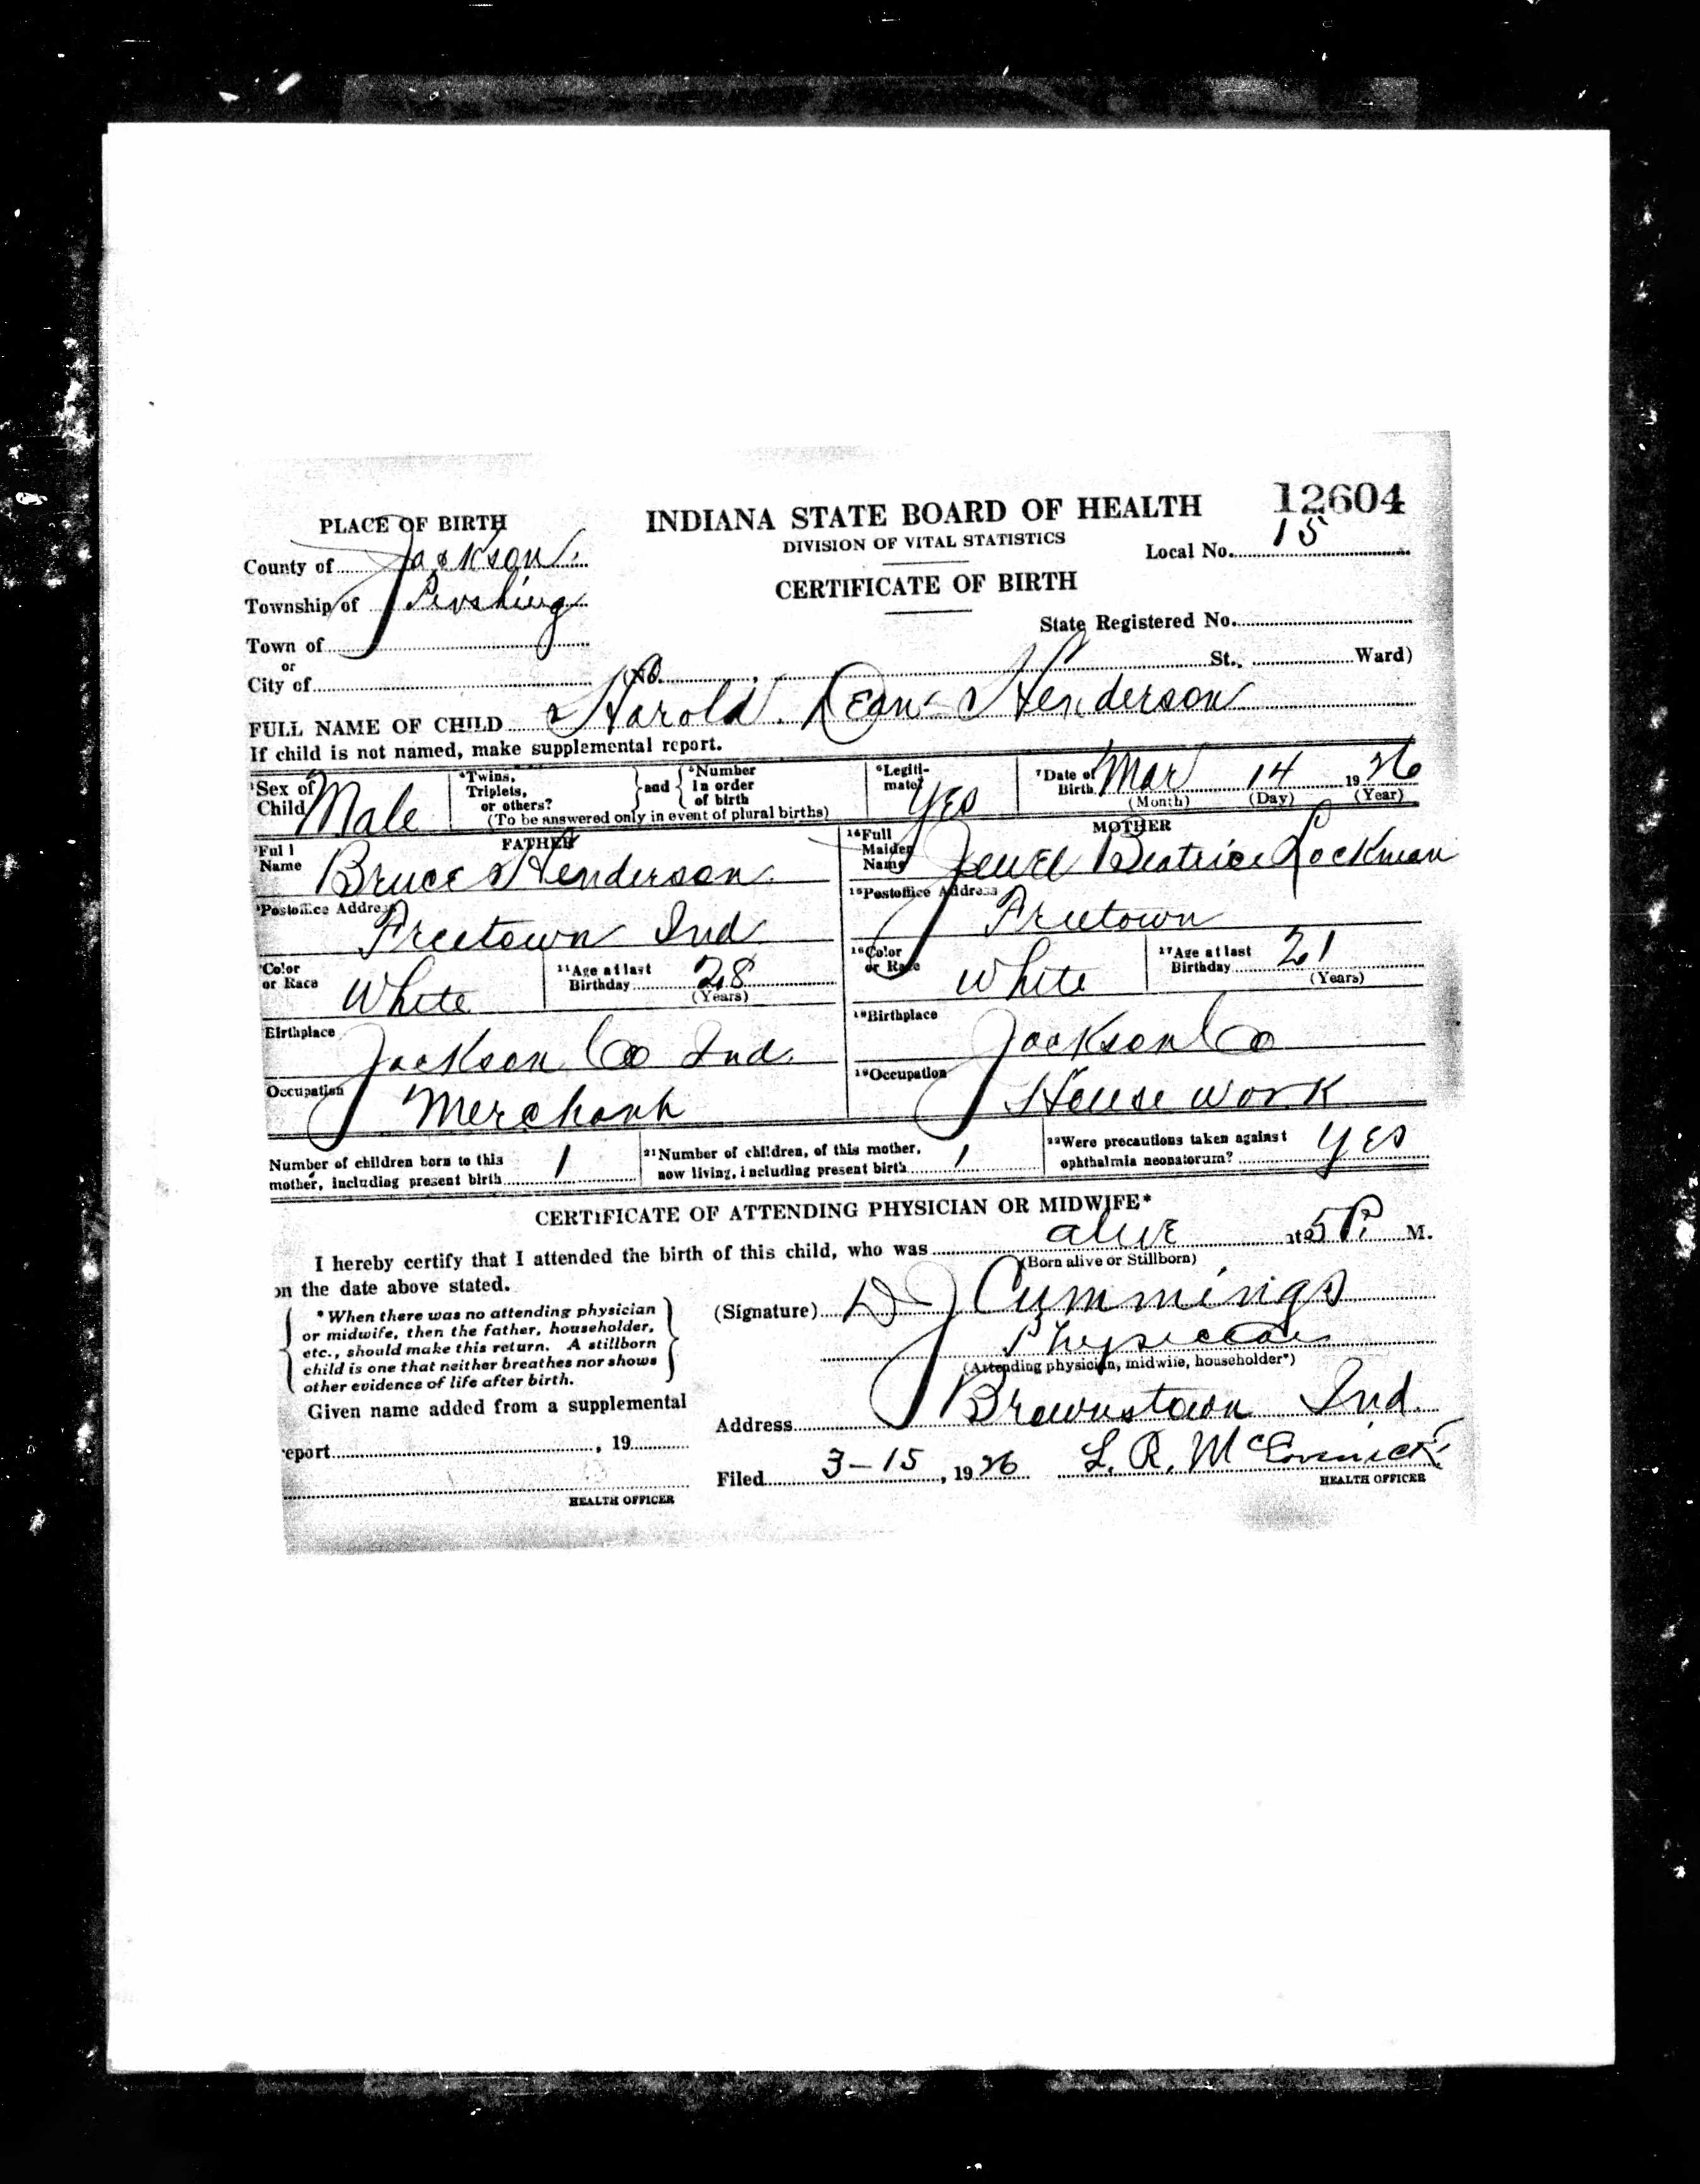 PLACE OF BIRTH
INDIANA STATE BOARD OF HEALTH
12604
DIVISION OF VITAL STATISTICS
County of Jackson
Local No. 15
CERTIFICATE OF BIRTH
Township of Pershing
State Registered No.
Town of
or
City of
No. St., Ward)
FULL NAME OF CHILD Harold Dean Henderson
If child is not named, make supplemental report.
Sex of Child Male
Twins, Triplets, or others? and Number in order of birth
(To be answered only in event of plural births)
Legitimate? Yes
Date of Birth Mar 14 1926
(Month) (Day) (Year)
FATHER
Full Name Bruce Henderson
Postoffice Address
Freetown Ind
Color or Race White
11 Age at last Birthday 28
(Years)
Birthplace
Jackson Co Ind.
Occupation
Merchant
MOTHER
14 Full Maiden Name Jewel Beatrice Lockman
15 Postoffice Address
Freetown
16 Color or Race White
17 Age at last Birthday 21
(Years)
18 Birthplace
Jackson Co
19 Occupation
House work
Number of children born to this mother, including present birth 1
21 Number of children, of this mother, now living, including present birth 1
22 Were precautions taken against ophthalmia neonatorum? Yes
CERTIFICATE OF ATTENDING PHYSICIAN OR MIDWIFE*
I hereby certify that I attended the birth of this child, who was alive at 5 P. M.
(Born alive or Stillborn)
on the date above stated.
* When there was no attending physician
or midwife, then the father, householder,
etc., should make this return. A stillborn
child is one that neither breathes nor shows
other evidence of life after birth.
(Signature) D J Cummings
Physician
(Attending physician, midwife, householder*)
Given name added from a supplemental
Address Brownstown Ind.
report , 19
Filed 3-15, 1926 L. R. McCormick
HEALTH OFFICER
HEALTH OFFICER